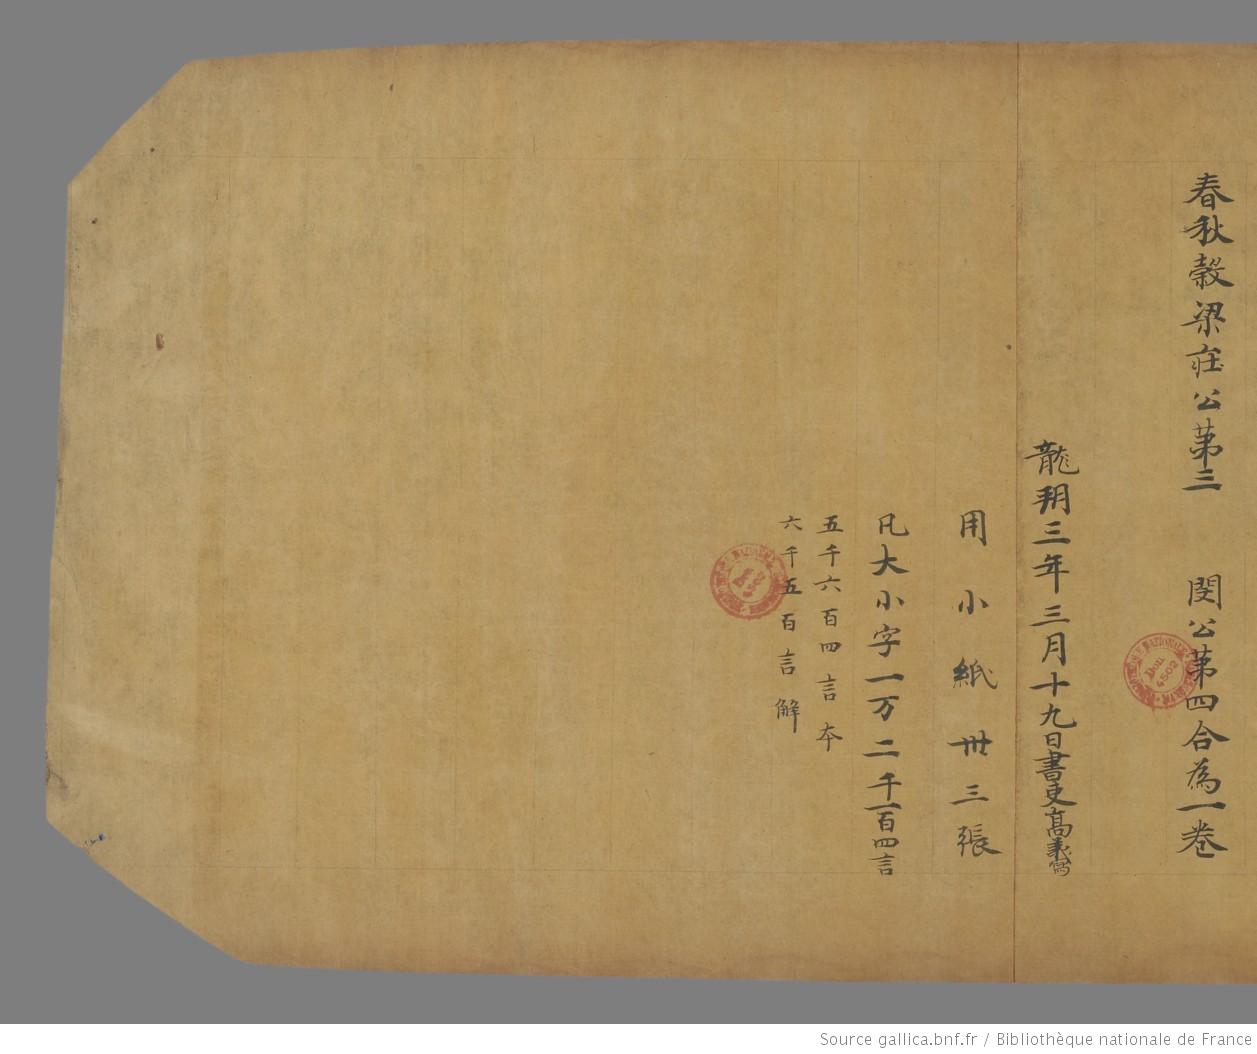 春秋穀梁莊公第三 閔公第四合為一卷
龍朔三年三月十九日書吏高義寫
用小紙卅三張
凡大小字一万二千一百四言
五千六百四言本
六千五百言解
Don 4502
Source gallica.bnf.fr / Bibliothèque nationale de France